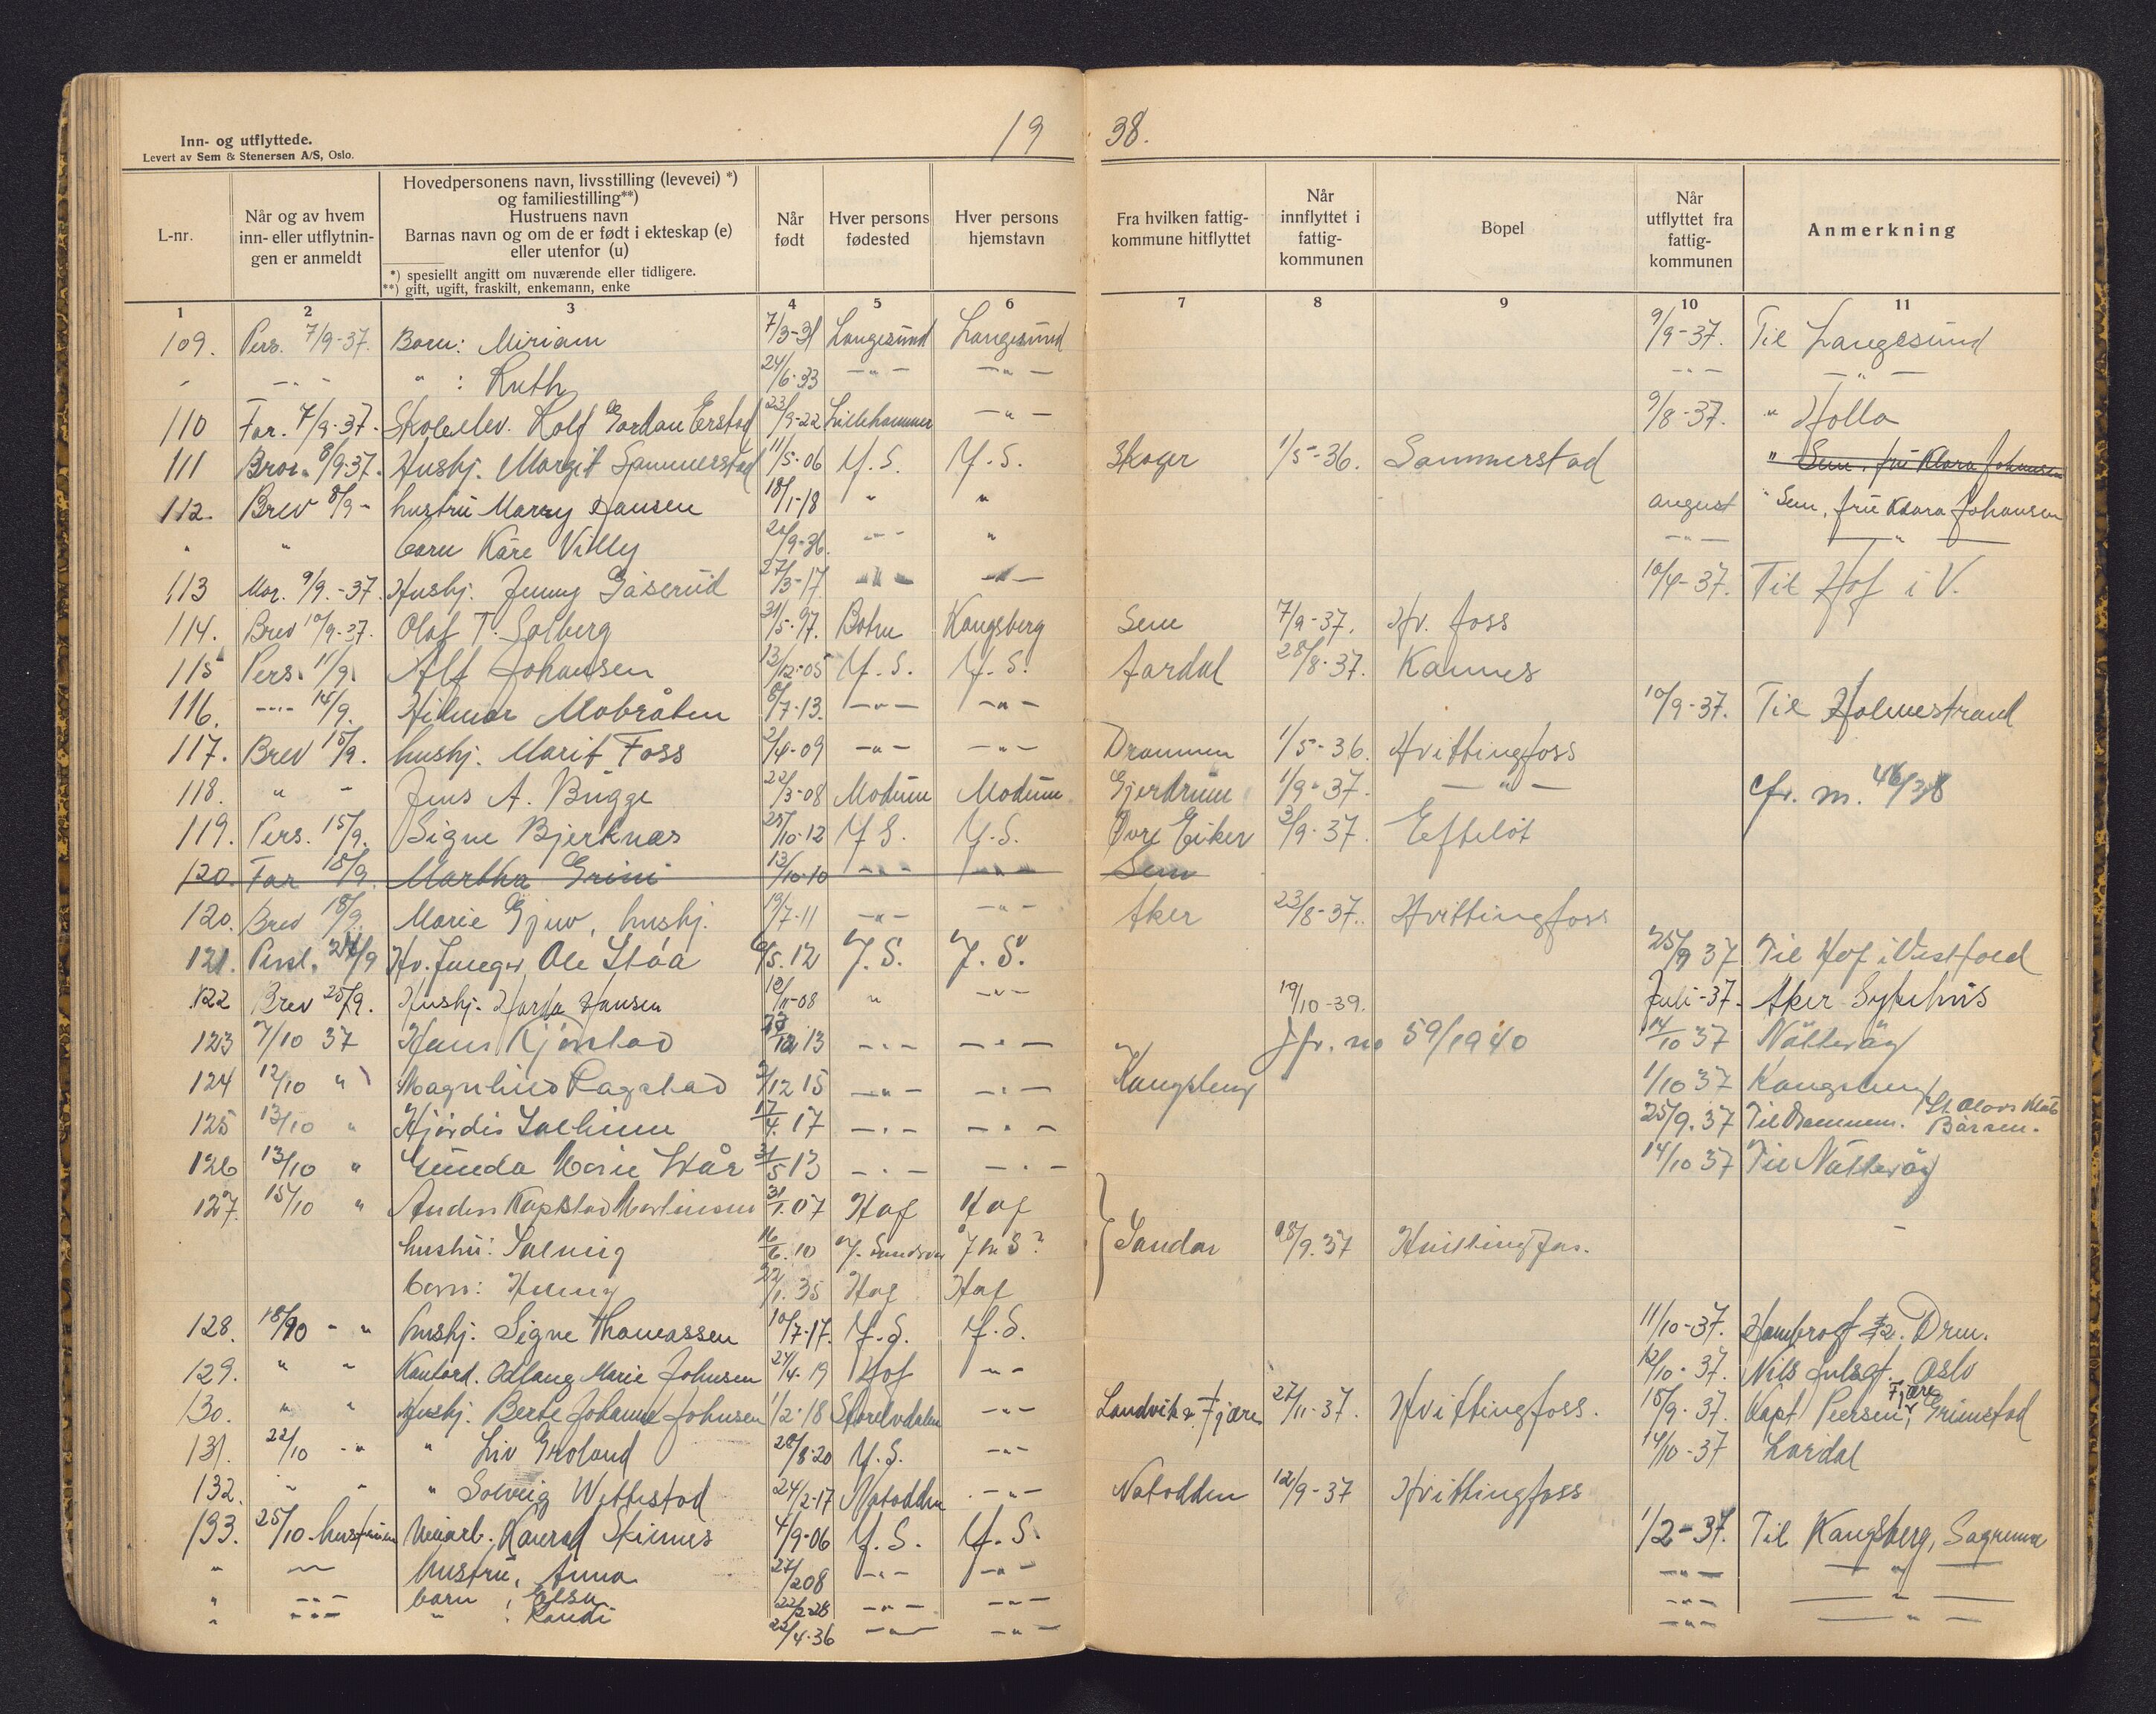 Inn- og utflyttede.
Levert av Sem & Stenersen A/S, Oslo.
19 38.
L-nr.
Når og av hvem inn- eller utflytnin-gen er anmeldt
Hovedpersonens navn, livsstilling (levevei) *)
og familiestilling**)
Hustruens navn
Barnas navn og om de er født i ekteskap (e)
eller utenfor (u)
*) spesiellt angitt om nuværende eller tidligere.
**) gift, ugift, fraskilt, enkemann, enke
Når født
Hver persons fødested
Hver persons hjemstavn
Fra hvilken fattig-kommune hitflyttet
Når innflyttet i fattig-kommunen
Bopel
Når utflyttet fra fattig-kommunen
Anmerkning
1 2 3 4 5 6 7 8 9 10 11
109. Pers. 7/9-37. Barn: Miriam 7/3-31 Langesund Langesund 9/9-37. Til Langesund
" -"- " : Ruth 24/6-33 -"- -"- -"- -"-
110 Far. 7/9-37. Skoleelev. Rolf Gordon Eerstad 23/9-22 Lillehammer -"- 9/8-37. " Holla
111 Brev. 8/9-37. Hushj. Margit Sammerstad 11/5-06 Y.S. Y.S. Skoger 1/5-36. Sammerstad " Sem, fru Klara Johansen
112. Brev 8/9- hustru Marry Hansen 18/1-18 " " august " Sem, fru Klara Johansen
" " barn Kåre Villy /9-36. -"- " -"- -"-
113 Mor. 9/9.-37. Hushj. Jenny Gåserud 27/3-17. -"- -"- 10/4-37. Til Hof i V.
114. Brev 10/9-37. Olaf T. Solberg 31/5-97. Botne Kongsberg Sem 7/9-37. Hv. foss
115 Pers. 11/9. Alf Johansen 13/12-05 Y.S. Y.S. Aardal 28/8-37. Kannes
116. -"- 14/9. Hilmar Mobråten 8/7-13. -"- -"- 10/9-37. Til Holmestrand
117. Brev 15/9. hushj. Marit Foss 2/4-09 -"- -"- Drammen 1/5-36. Hvittingfoss
118. " - Jens A. Bugge 22/3-08 Modum Modum Gjerdrum 1/9-37. -"- cfr. m. 46/38
119. Pers. 15/9. Signe Bjerknæs 25/10-12 Y.S. Y.S. Øvre Eiker 3/9-37. Efteløt
120. Far 18/9. Martha Grini 13/10-10 -"- -"- Sem
120. Brev 18/9. Marie Gjuv, hushj. 19/7-11 -"- -"- Aker 23/8-37. Hvittingfoss
121. Persl. 24/9 Ole Støa 6/5.12 Y.S. Y.S. 25/9 37 Til Hof i Vestfold
122 Brev 25/9. Hushj. Hansen 12/11-08 " -"- 19/10-39. Juli-37. Aker Sykehus
123 7/10 37 Hans Kjørstad 13 -"- -"- " Jfr. no 59/1940 14/10 37 Nøtterøy
124 12/10 " Magnhild Ragstad 2/12 15 -"- -"- Kongsberg 1/10 37 Kongsberg
125 13/10 " Hjørdis Solheim 17/4.17 -"- -"- 25/9.37 Til Drammen. St. Olavs Bærum.
126 13/10 " Gunda Marie Skår 31/5 13 -"- -"- 14/10 37 Til Nøtterøy
127. 15/10 " Anders Kopstad Martinsen 31/1.07 Hof Hof
hustru: Solveig 16/6.10 Y. Sandsvær Y.S? Sandar 28/9.37 Hvittingfoss. -
barn: 22/1.35 Hof Hof
128. 18/10 - " hushj. Signe Thomassen 10/7-17. Y.S. Y.S. 11/10-37. Hambrogt 32. Drm.
129. " " Kontord. Odlaug Marie Johnsen 24/4-19 Hof -"- 12/10-37. Nils Julsgt. Oslo
130. " " Hushj. Berte Johanne Johnsen 1/2-18 Storelvdalen -"- Landvik & Fjære 27/11-37. Hvittingfoss. 15/9-37. Kapt Peersen, Fjære v Grimstad
131. 22/10 -" " Liv Groland 28/8-20 Y.S. -"- 14/10-37 Lardal
132. " " " Solveig Wettestad 24/2-17 Notodden -"- Notodden 12/9-37 Hvittingfoss
133. 25/10-hustruen Veiarb. Konrad Skinnes 4/9-06 Y.S. Y.S. 1/2-37. Til Kongsberg, Sagrenna
" -"- hustru, Anna 27/2 08 -"- -"- -"- -"-
" -"- barn : Elsa 22/2-28 -"- -"- -"- -"-
" -"- " : Randi 22/4-36 -"- -"- -"- -"-